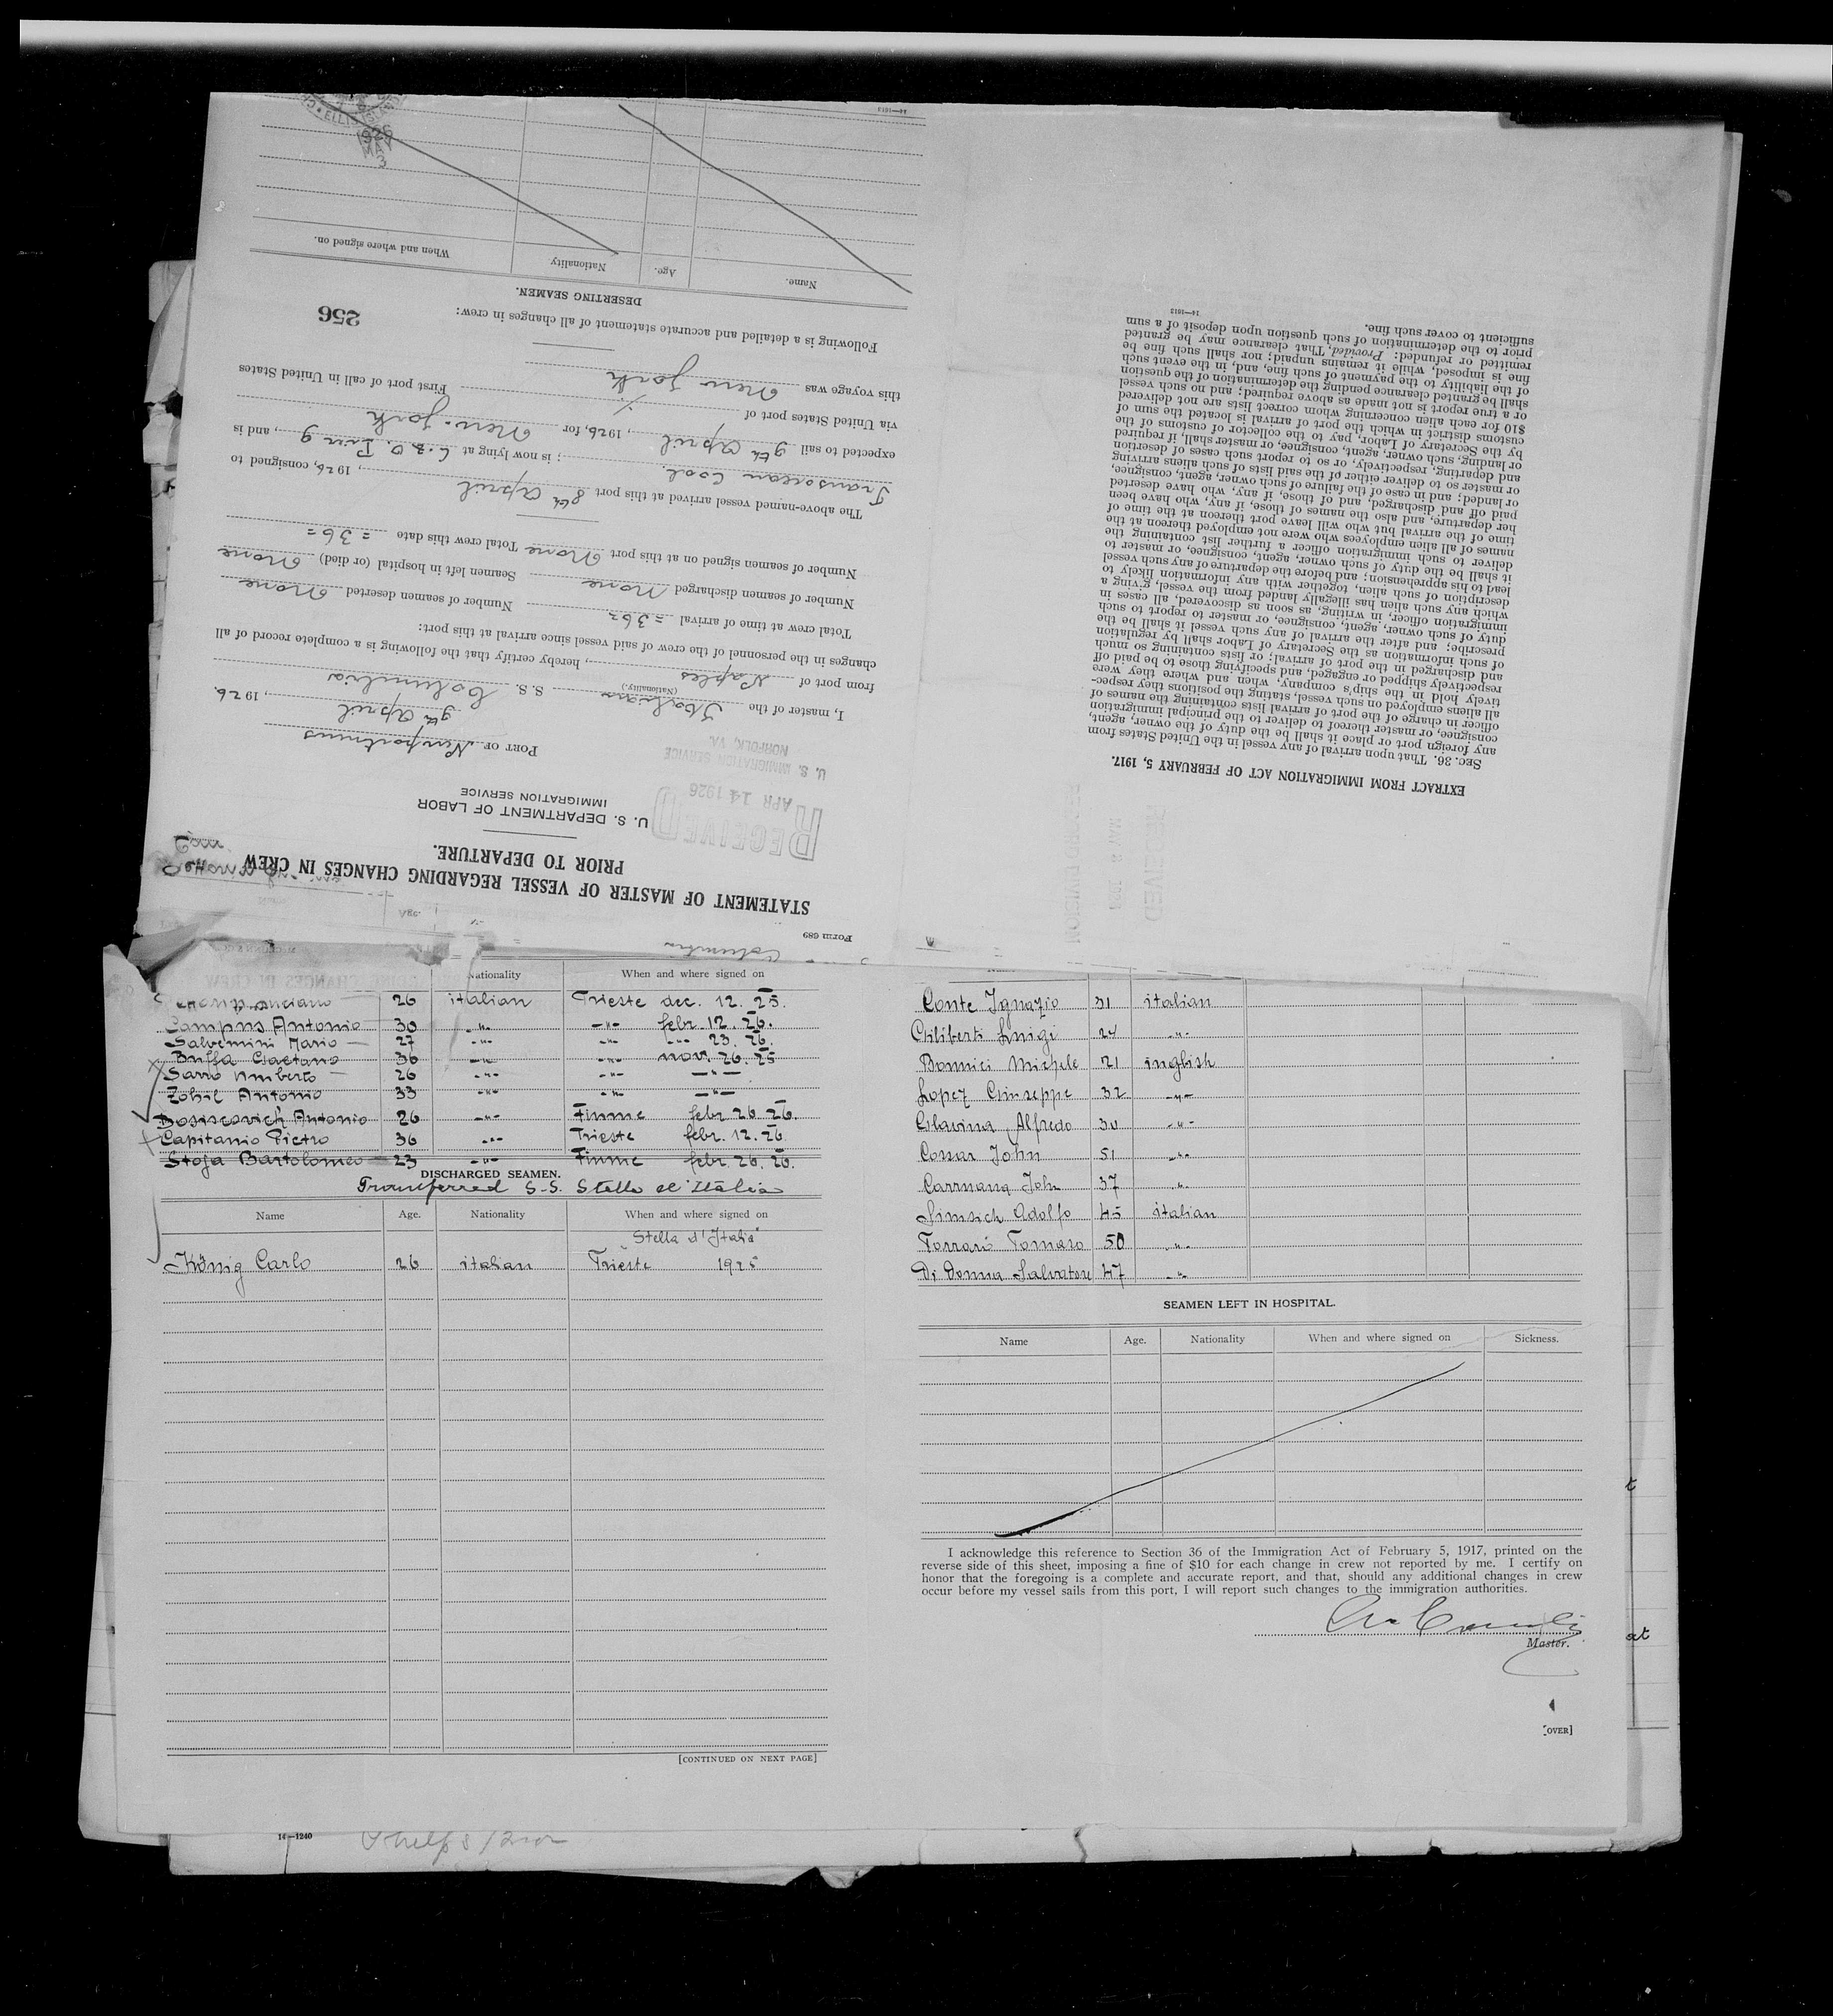 Form 689
STATEMENT OF MASTER OF VESSEL REGARDING CHANGES IN CREW
PRIOR TO DEPARTURE.
U. S. DEPARTMENT OF LABOR
IMMIGRATION SERVICE
RECEIVED
APR 14 1926
U. S. IMMIGRATION SERVICE
NORFOLK, VA.
PORT OF Newportnews
9th April, 1926.
I, master of the Italian S. S. Columbia
(Nationality.)
from port of Naples, hereby certify that the following is a complete record of all
changes in the personnel of the crew of said vessel since arrival at this port:
Total crew at time of arrival Number of seamen deserted None
Number of seamen discharged None Seamen left in hospital (or died) None
Number of seamen signed on at this port None Total crew this date = 36 =
The above-named vessel arrived at this port 8th April, 1926, consigned to
Transocean Coal; is now lying at C. & O. Pier 9, and is
expected to sail 9th April, 1926, for New-York
via United States port of First port of call in United States
this voyage was New York
Following is a detailed and accurate statement of all changes in crew:
256
DESERTING SEAMEN.
Name. Age. Nationality When and where signed on.
14—1813
EXTRACT FROM IMMIGRATION ACT OF FEBRUARY 5, 1917.
SEC. 36. That upon arrival of any vessel in the United States from
any foreign port or place it shall be the duty of the owner, agent,
consignee, or master thereof to deliver to the principal immigration
officer in charge of the port of arrival lists containing the names of
all aliens employed on such vessel, stating the positions they respec-
tively hold in the ship's company, when and where they were
respectively shipped or engaged, and specifying those to be paid off
and discharged in the port of arrival; or lists containing so much
of such information as the Secretary of Labor shall by regulation
prescribe; and after the arrival of any such vessel it shall be the
duty of such owner, agent, consignee, or master to report to such
immigration officer, in writing, as soon as discovered, all cases in
which any such alien has illegally landed from the vessel, giving a
description of such alien, together with any information likely to
lead to his apprehension; and before the departure of any such vessel
it shall be the duty of such owner, agent, consignee, or master to
deliver to such immigration officer a further list containing the
names of all alien employees who were not employed thereon at the
time of the arrival but who will leave port thereon at the time of
her departure, and also the names of those, if any, who have been
paid off and discharged, and of those, if any, who have deserted
or landed; and in case of the failure of such owner, agent, consignee,
or master so to deliver either of the said lists of such aliens arriving
and departing, respectively, or so to report such cases of desertion
or landing, such owner, agent, consignee, or master shall, if required
by the Secretary of Labor, pay to the collector of customs of the
customs district in which the port of arrival is located the sum of
$10 for each alien concerning whom correct lists are not delivered
or a true report is not made as above required; and no such vessel
shall be granted clearance pending the determination of the question
of the liability to the payment of such fine, and, in the event such
fine is imposed, while it remains unpaid; nor shall such fine be
remitted or refunded: Provided, That clearance may be granted
prior to the determination of such question upon deposit of a sum
sufficient to cover such fine.
14—1813
Nationality When and where signed on
26 italian Trieste dec. 12. 25.
Campus Antonio 30 -"- -"- febr. 12. 26.
Salvemini Mario 27 -"- -"- -"- 23. 26.
Buffa Gaetano 36 -"- -"- nov. 26. 25
Sarno Umberto 26 -"- -"- -"-
Zohil Antonio 33 -"- -"- -"-
Bosiscovich Antonio 26 -"- Fiume febr. 26. 26.
Capitanio Pietro 36 -"- Trieste febr. 12. 26.
Stoja Bartolomeo 23 -"- Fiume febr. 26. 26.
DISCHARGED SEAMEN.
Transferred S-S. Stella d'Italia
Name Age. Nationality When and where signed on
Stella d'Italia"
König Carlo 26 italian Trieste 1925
[CONTINUED ON NEXT PAGE]
Conte Ignazio 31 italian
Ciliberti Luigi 24 -"-
Bonnici Michele 21 inglish
Lopez Giuseppe 32 -"-
Glavina Alfredo 30 -"-
Cossar John 51 -"-
Carruana John 37 -"-
Simsich Adolfo 45 italian
Ferraró Tomaso 50 -"-
Di Donna Salvatore 47 -"-
SEAMEN LEFT IN HOSPITAL.
Name Age. Nationality When and where signed on Sickness.
I acknowledge this reference to Section 36 of the Immigration Act of February 5, 1917, printed on the
reverse side of this sheet, imposing a fine of $10 for each change in crew not reported by me. I certify on
honor that the foregoing is a complete and accurate report, and that, should any additional changes in crew
occur before my vessel sails from this port, I will report such changes to the immigration authorities.
Master.
[OVER]
at
14—1240